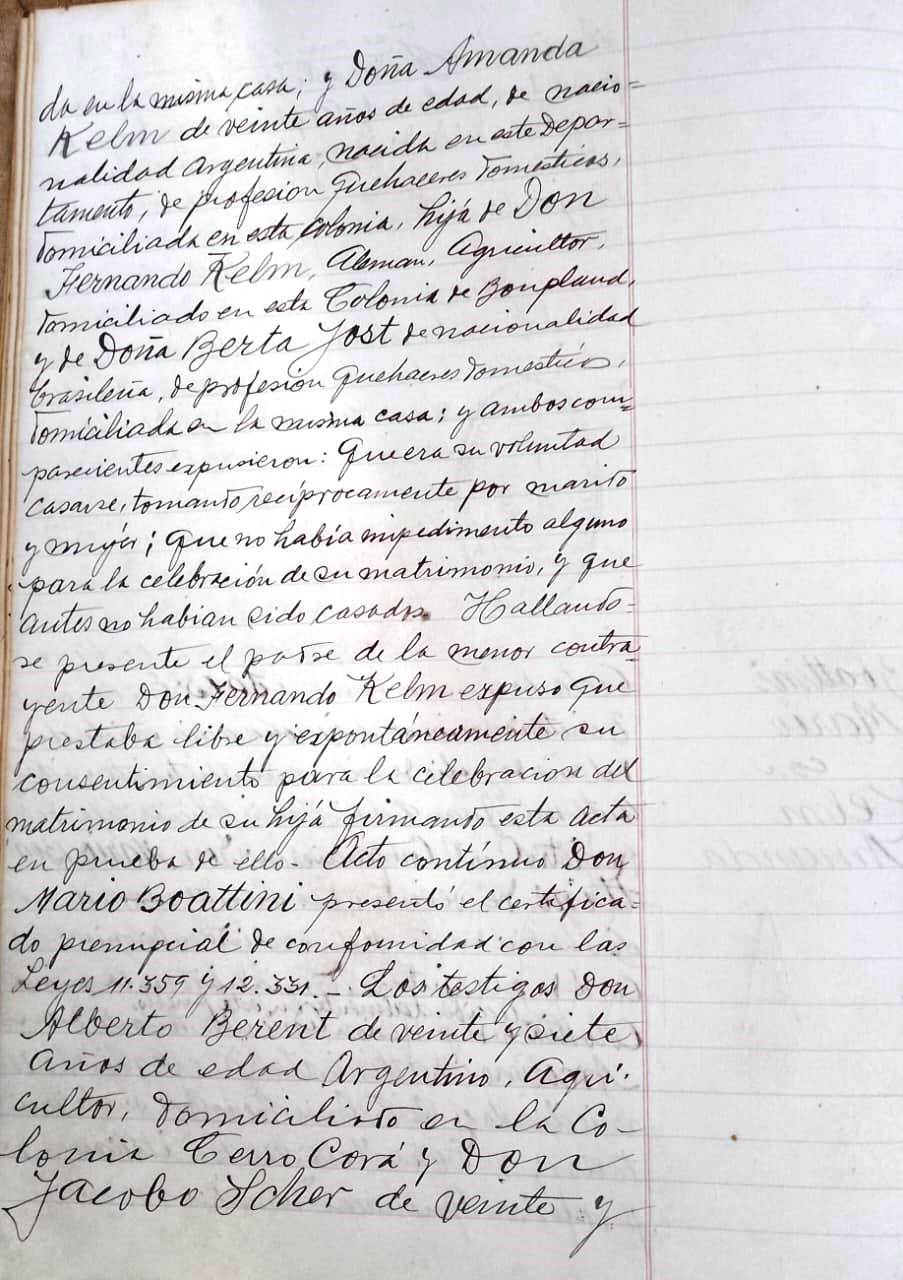 da en la misma casa; y Doña Amanda
Kelm de veinte años de edad, de nacio=
nalidad Argentina, nacida en este Depar=
tamento, de profesion quehaceres domesticos,
domiciliada en esta Colonia, hija de Don
Fernando Kelm, Aleman, Agricultor,
domiciliado en esta Colonia de Bonpland,
y de Doña Berta Jost de nacionalidad
brasileña, de profesion quehaceres domesticos,
domiciliada en la misma casa; y ambos com=
parecientes expusieron: Que era su voluntad
casarse, tomando recíprocamente por marido
y mujer; que no había impedimento alguno
para la celebración de su matrimonio, y que
antes no habian sido casados. Hallando=
se presente el padre de la menor contra=
yente Don Fernando Kelm expuso que
prestaba libre y expontáneamente su
consentimiento para la celebracion del
matrimonio de su hijá firmando esta acta
en prueba de ello - Acto contínuo Don
Mario Boattini presentó el certifica=
do prenupcial de conformidad con las
Leyes 11.359 y 12.331. - Los testigos Don
Alberto Berent de veinte y siete
años de edad Argentino, Agri-
cultor, domiciliado en la Co-
lonia Cerro Corá y Don
Jacobo Scher de veinte y